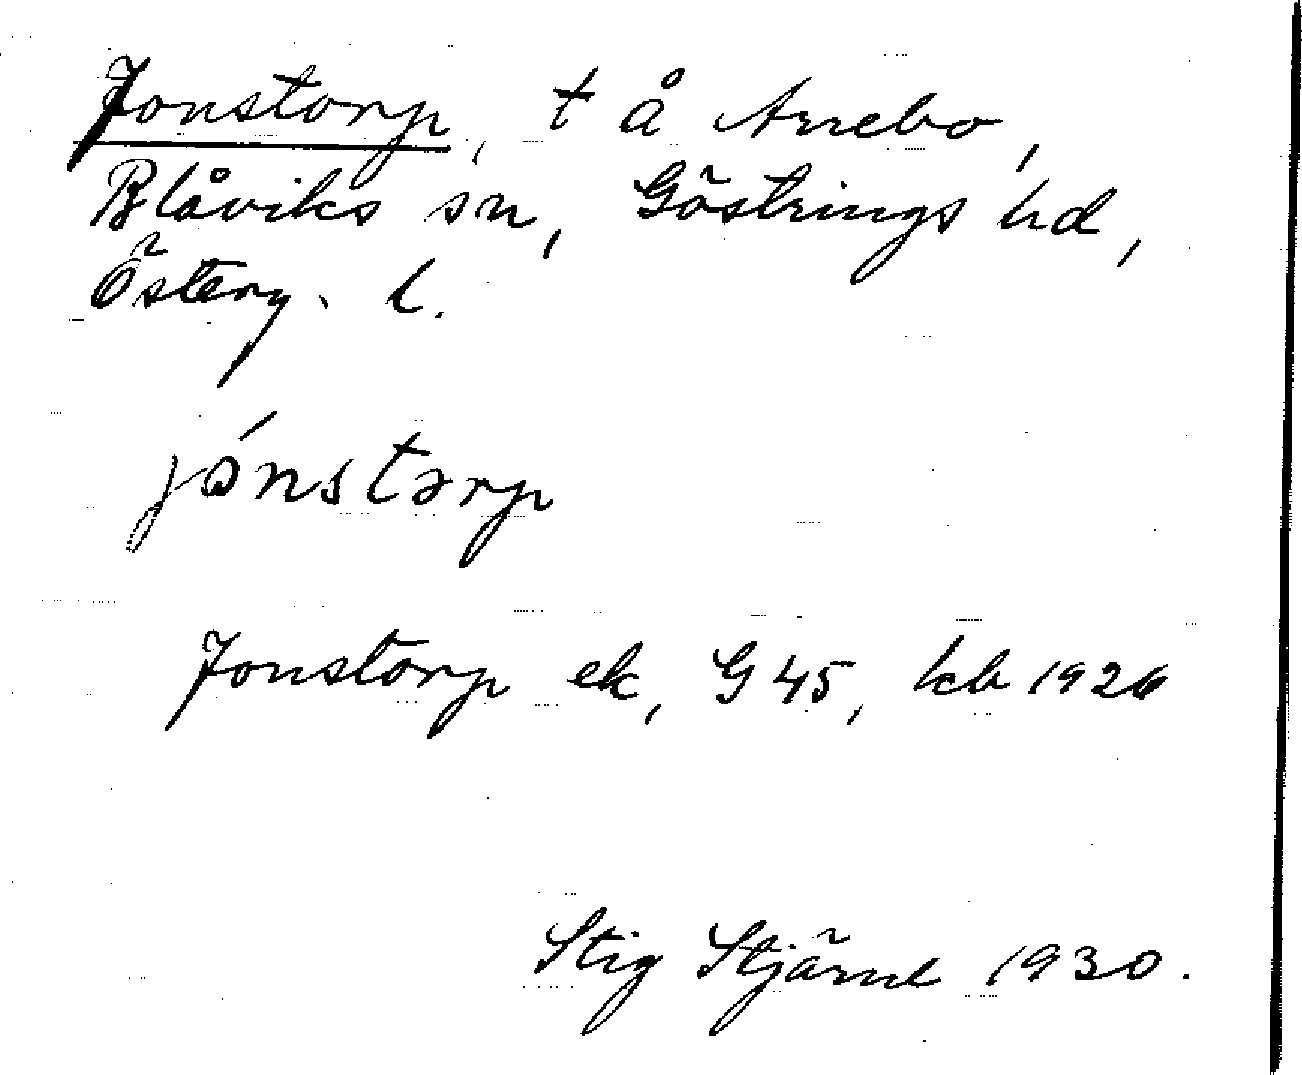 Jonstorp, t å Arnebo,
Blåviks sn, Göstrings hd,
Österg. l.
jónstɔrp
Jonstorp ek, G 45, kb 1926
Stig Stjärne 1930.